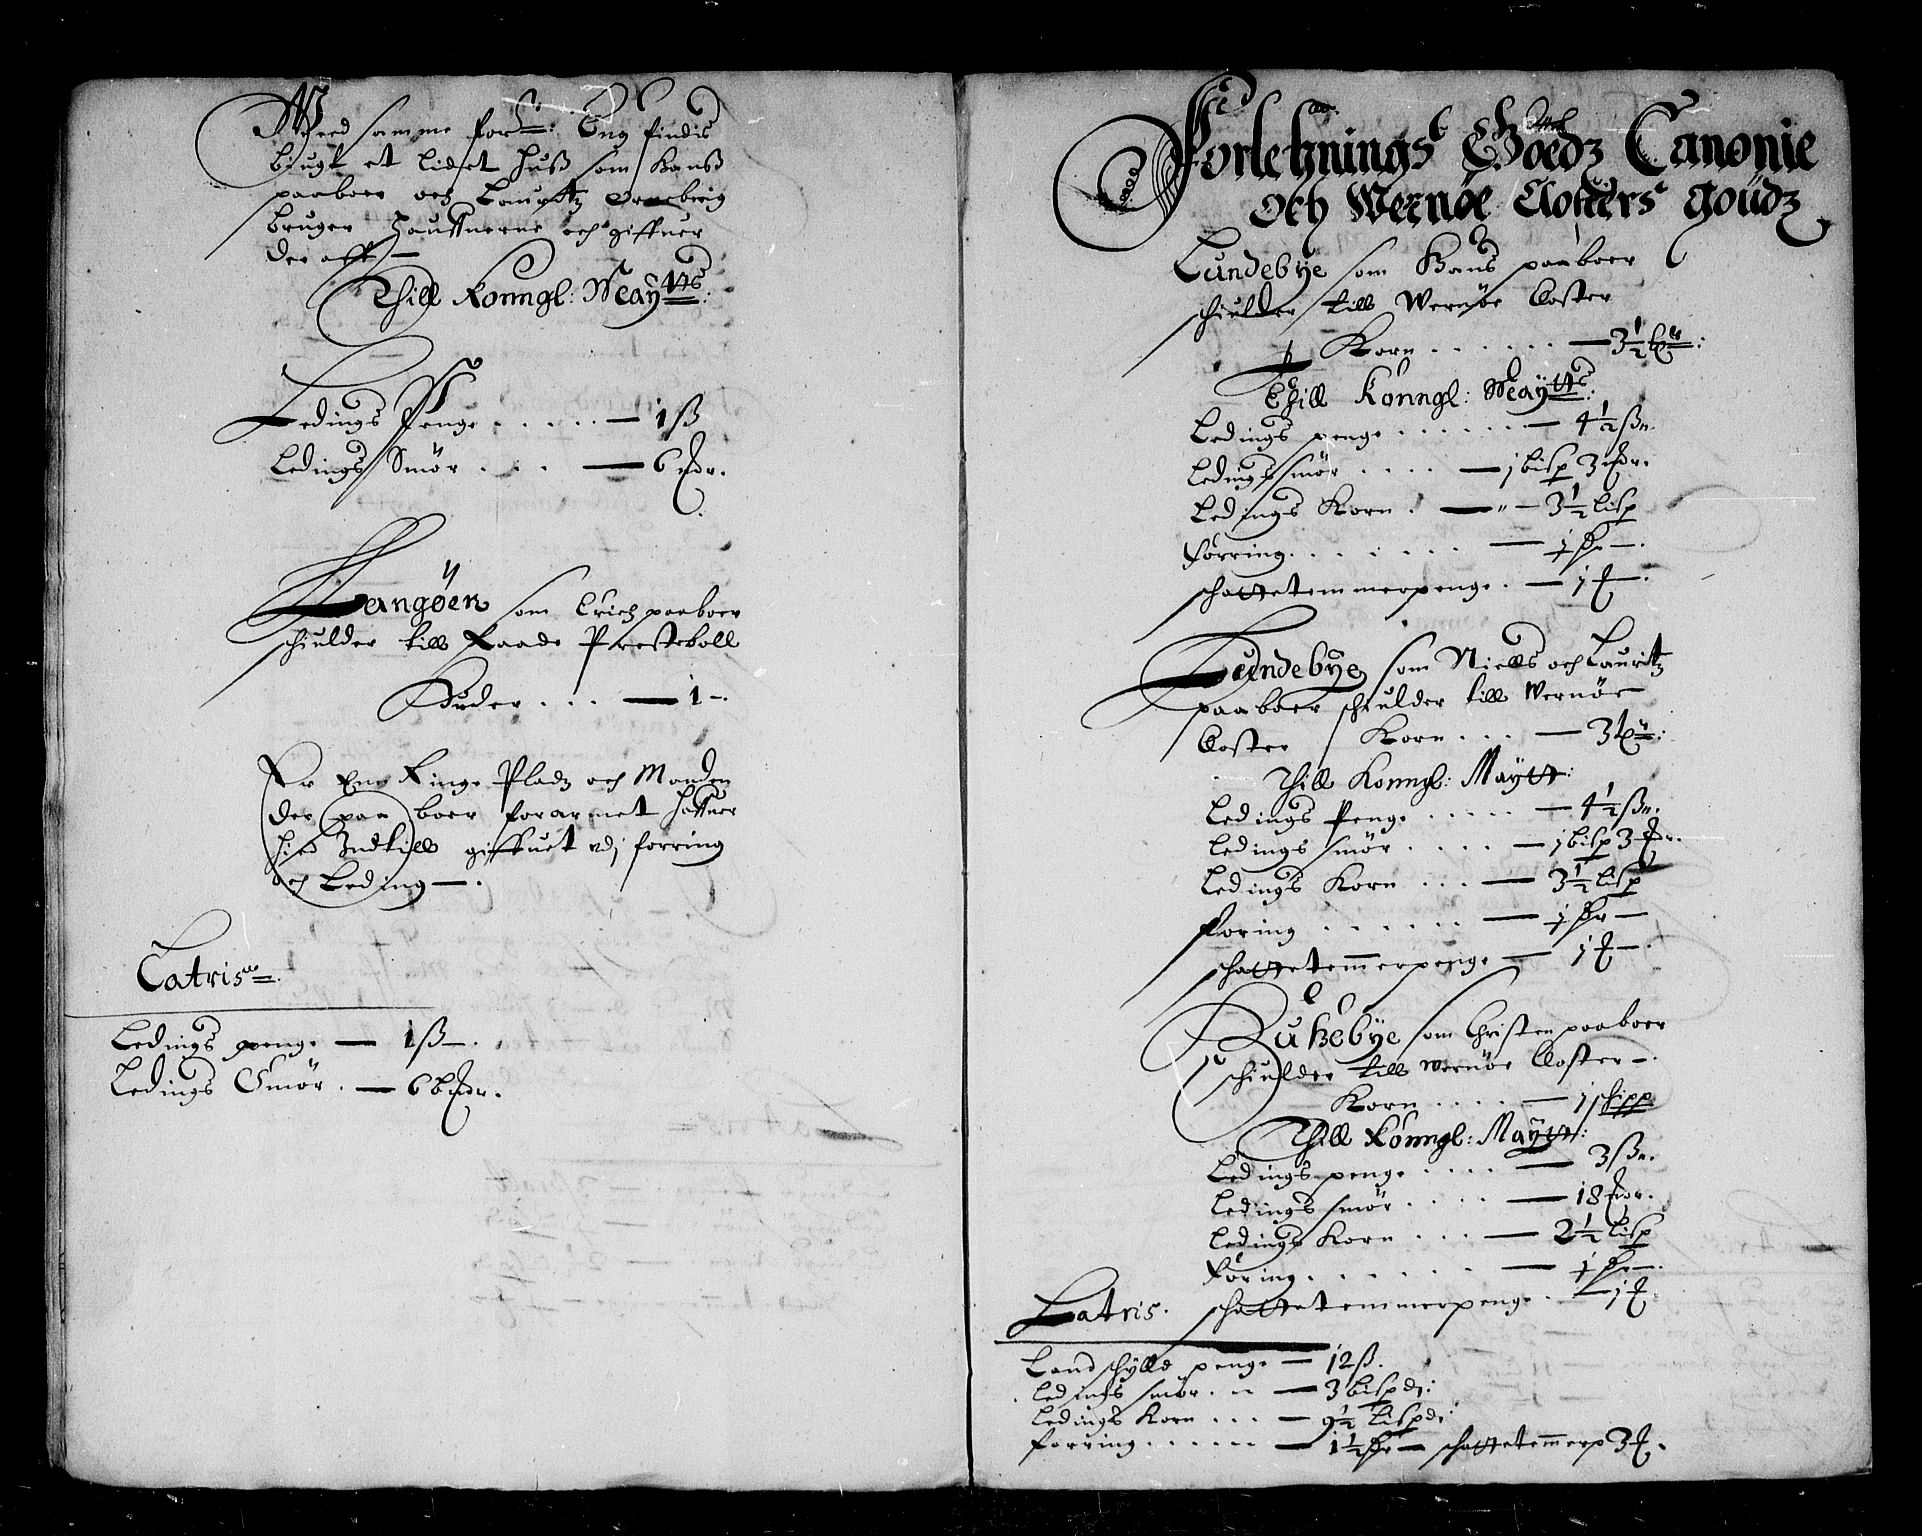 Weed samme for: Eng findis
biugt et lidet Huss som Hanss
paaboer och Lauritz
bruger Hauffnerne och giffuer
der aff
Thill Konngl: Mayts:
Ledings Penge . . . . . — 1 ß
Ledings Smør . . . — 6
Langøen som Erich paaboer
schiulder till Raade Presteboll
Huder . . . — 1 —.
Er En Ringe Pladz och Manden
der paa boer forarmet haffuer
hid Indtill giffuet vdj forring
och Leding —.
Latris
Ledings penge — 1 ß —.
Ledings Smør . — 6
Forlehnings Goedz Canonie
och Wernøe Closters goudz
Lundebye som Hans paaboer
schiulder till Wernøe Closter
Korn . . . . . . — 3½
Thill Konngl: Mayts:
Ledings penge . . . . . . — 4½ ß
Ledings smør . . . . — 1 bisp 3
Ledings Korn . — 3½ lisp
Førring . . . . . . . — 1
schattetemmerpenge . — 1
Lundebye som Niells och Lauritz
paaboer schiulder till Wernøe
Closter Korn . . . — 3
Thill Konngl: Maytt:
Ledings Penge . . . . . — 4½ ß
Ledings smør . . . . — 1 bisp 3
Ledings Korn . . . — 3½ lisp
Foring . . . . . . — 1
schattetemmerpenge — 1
som Christen paaboer
schiulder till Wernøe Closter —.
Korn . . . . — 1 schipp
Thill Konngl: Maytt:
Ledings penge . . . . — 3 ß
Ledings smør . . . . — 18
Ledings Korn . . . — 2½ lisp
Føring . . . . . . — 1
schattetemmerpenge . — 1
Latris.
Landschylld penge — 12 ß.
Ledings smør . . — 3 bispd:
Ledings Korn . . . — 9½ lispd:
Forring . . . . . . — 1½ — schattetemmerp 3